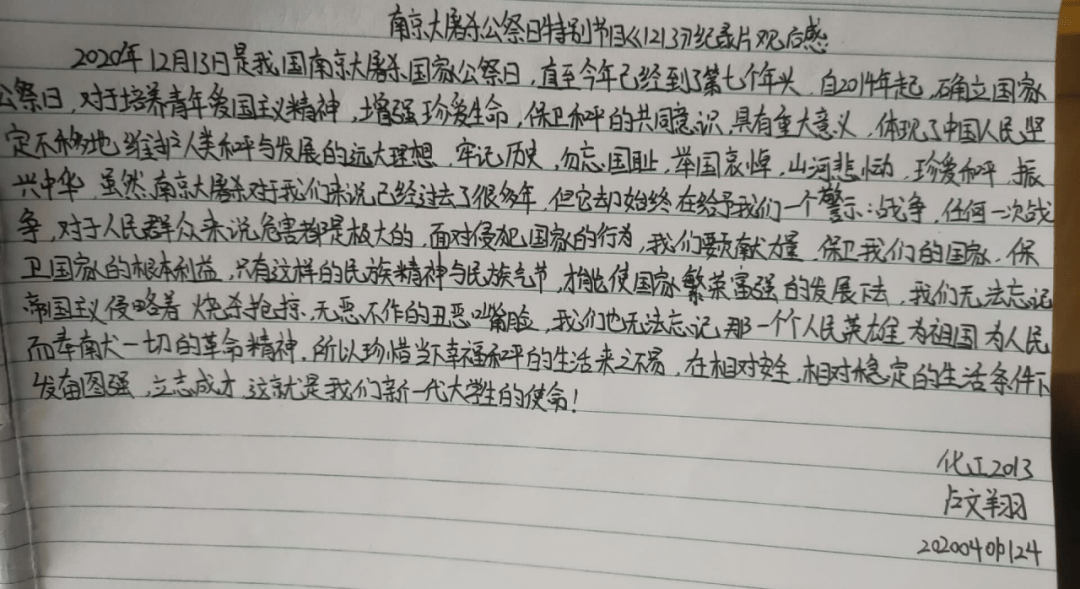 南京大屠杀公祭日特别节目《1213》纪录片观后感
2020年12月13日是我国南京大屠杀国家公祭日，直至今年已经到了第七个年头，自2014年起，确立国家
公祭日，对于培养青年爱国主义精神，增强珍爱生命，保卫和平的共同意识，具有重大意义，体现了中国人民坚
定不移地维护人类和平与发展的远大理想，牢记历史，勿忘国耻，举国哀悼，山河悲恸，珍爱和平，振
兴中华，虽然南京大屠杀对于我们来说已经过去了很多年，但它却始终在给予我们一个警示：战争，任何一次战
争，对于人民群众来说危害都是极大的，面对侵犯国家的行为，我们要贡献力量，保卫我们的国家，保
卫国家的根本利益，只有这样的民族精神与民族气节，才能使国家繁荣富强的发展下去，我们无法忘记
帝国主义侵略者 烧杀抢掠，无恶不作的丑恶嘴脸，我们也无法忘记那一个个人民英雄为祖国为人民
而奉献一切的革命精神，所以珍惜当下幸福和平的生活来之不易，在相对安全，相对稳定的生活条件下
发奋图强，立志成才，这就是我们新一代大学生的使命！
化工2013
卢文翔羽
2020040124